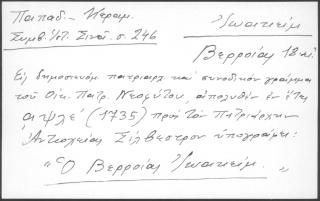 Παπαδ. - Κεραμ.
Συμβ. Ἱστ. Σινᾶ. σ. 246
Ἰωακεὶμ
Βερροίας 18 αἰ.
Εἰς δημοσιευόμ. πατριαρχ. καὶ συνοδικὸν γράμμα
τοῦ Οἰκ. Πατρ. Νεοφύτου, ἀπολυθὲν ἐν ἔτει
αψλε´ (1735) πρὸς τὸν Πατριάρχην
Ἀντιοχείας Σίλβεστρον ὑπογράφει:
"Ὁ Βερροίας Ἰωακείμ."